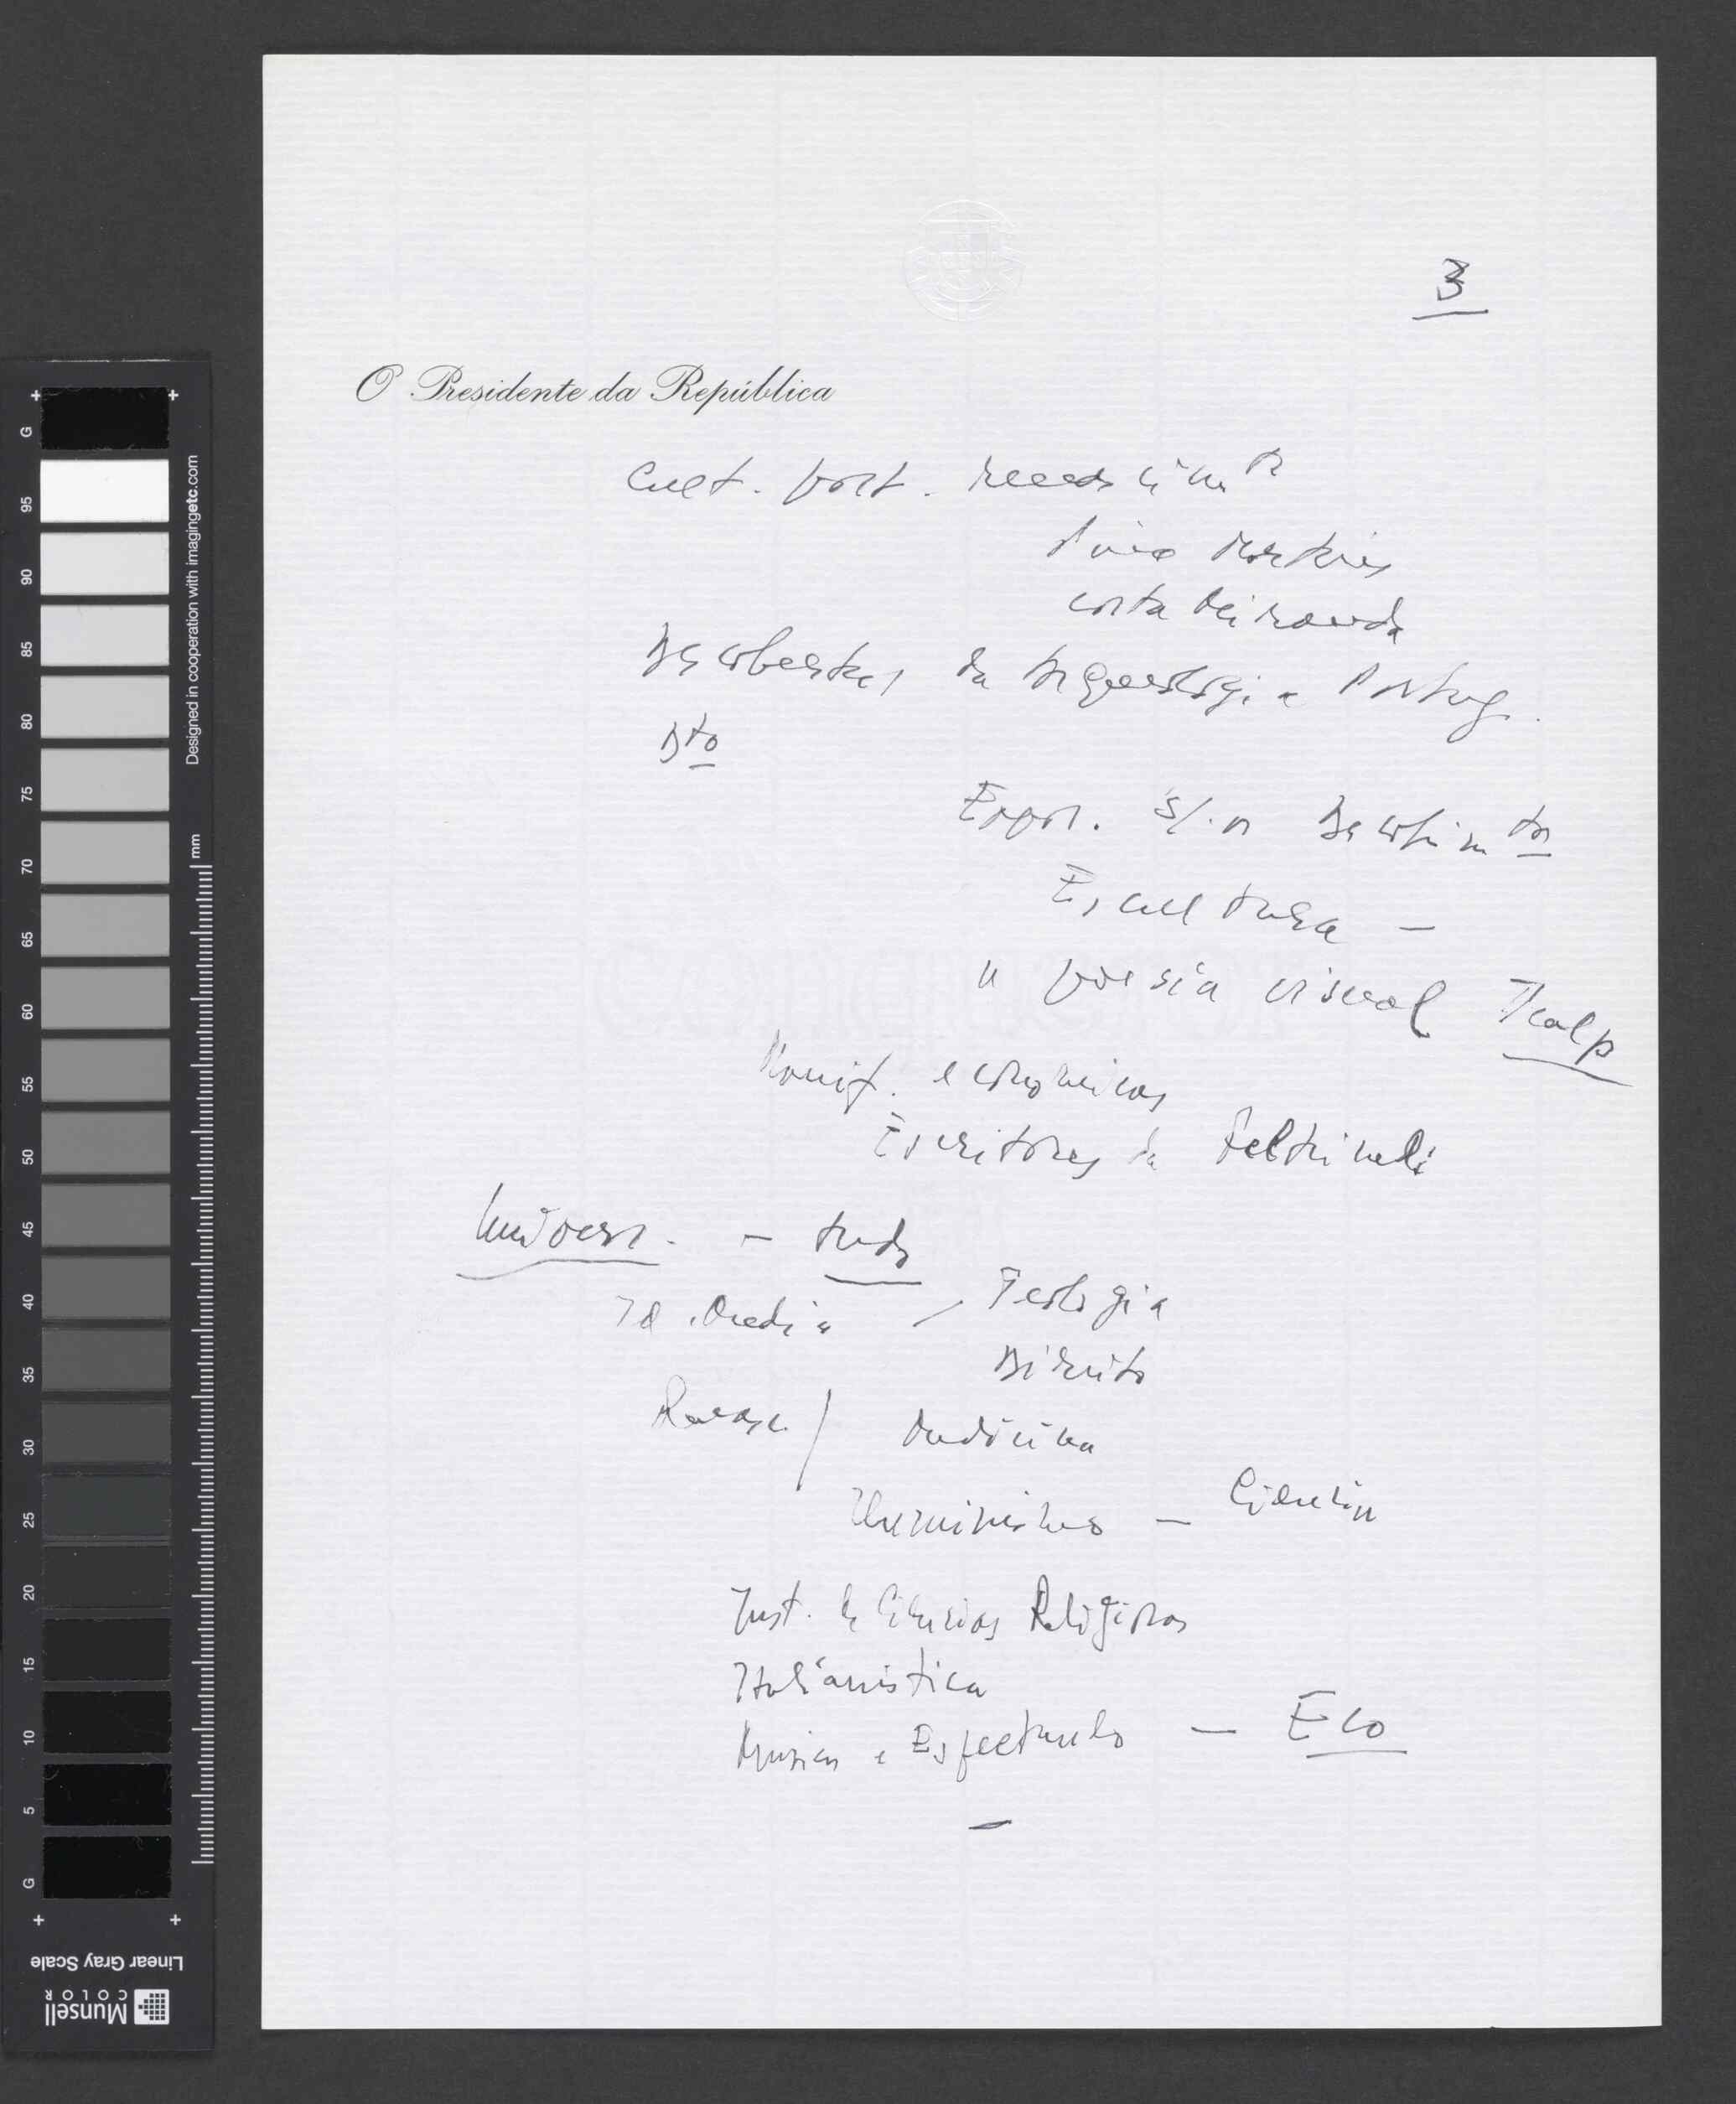 3
O Presidente da República
Cult. port.
Costa Miranda
Descobertas da Arqueologia Portug.
Dto
Expos. s/ os Descobrimtos
Escultura —
u poesia visual Icalp
Manif. economicas
Escritores da Feltrinelli
Univers. — tudo
Id. Media / Teologia
Direito
Renasc. / Medicina
Iluminismo — Ciencia
Inst. de Ciencias Religiosas
Italianistica
Musica e Espectaculo — Eco
—
G
95
90
85
80
75
70
65
60
55
50
45
40
35
30
25
20
15
10
5
G
Designed in cooperation with imagingetc.com
mm
Linear Gray Scale
Munsell
COLOR